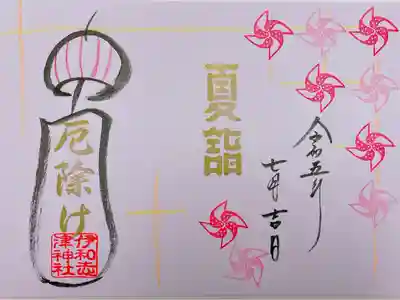 令和五年
七月吉日
夏詣
厄除け
伊和志
津神社